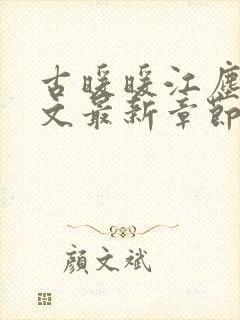 古暖暖江塵
文最新章節
顏文斌